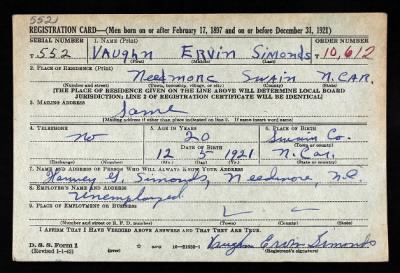 552
REGISTRATION CARD—(Men born on or after February 17, 1897 and on or before December 31, 1921)
SERIAL NUMBER 1. NAME (Print) ORDER NUMBER
T 552 Vaughn Ervin Simonds T 10,612
(First) (Middle) (Last)
2. PLACE OF RESIDENCE (Print)
Needmore Swain N.Car.
(Number and street) (Town, township, village, or city) (County) (State)
[THE PLACE OF RESIDENCE GIVEN ON THE LINE ABOVE WILL DETERMINE LOCAL BOARD
JURISDICTION; LINE 2 OF REGISTRATION CERTIFICATE WILL BE IDENTICAL]
3. MAILING ADDRESS
Same
[Mailing address if other than place indicated on line 2. If same insert word same]
4. TELEPHONE 5. AGE IN YEARS 6. PLACE OF BIRTH
No 20 Swain Co.
DATE OF BIRTH (Town or county)
12 5 1921 N. Car.
(Exchange) (Number) (Mo.) (Day) (Yr.) (State or country)
7. NAME AND ADDRESS OF PERSON WHO WILL ALWAYS KNOW YOUR ADDRESS
Simonds, Needmore, N.C.
8. EMPLOYER'S NAME AND ADDRESS
Unemployed
9. PLACE OF EMPLOYMENT OR BUSINESS
(Number and street or R. F. D. number) (Town) (County) (State)
I AFFIRM THAT I HAVE VERIFIED ABOVE ANSWERS AND THAT THEY ARE TRUE.
D. S. S. Form 1
(Revised 1-1-42) (over) Vaughn Ervin Simonds
(Registrant's signature)